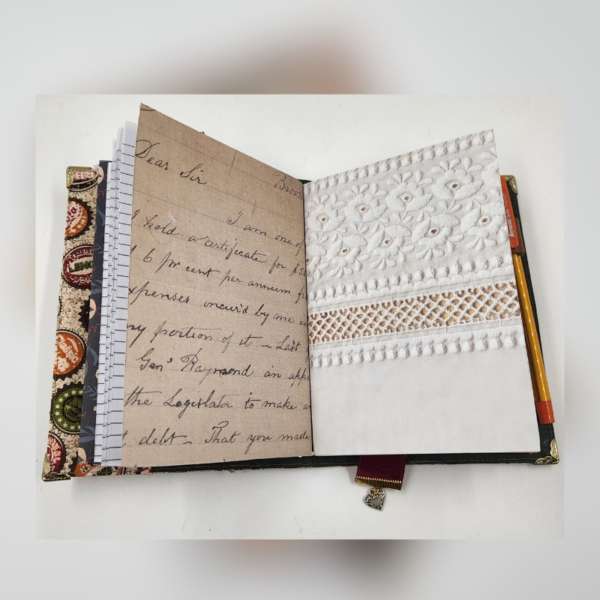 Dear Sir
I am one of
I hold a certificate for $
d 6 pr cent per annum
expenses incur'd by me
ny portion of it ~ Last
Genl Raymond an app
the Legislator to make a
debt ~ That you made